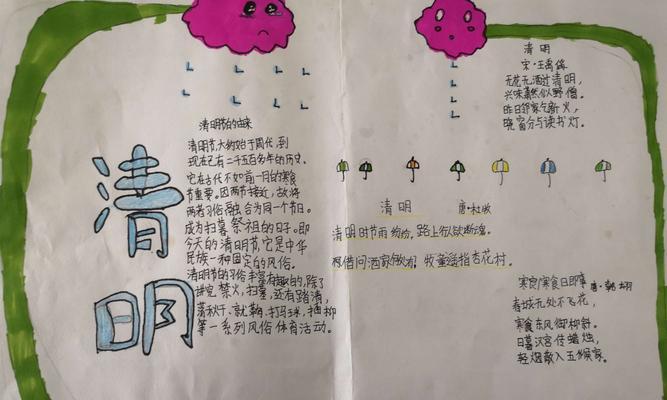 清明
清明节的由来
清明节大约始于周代,到
现在已有二千五百多年的历史。
它在古代不如前一月的寒食
节重要。因两节接近,故将
两者习俗融合为同一个节日。
成为扫墓祭祖的日子。即
今天的清明节,它是中华
民族一种固定的风俗。
清明节的习俗丰富有趣的,除了
讲究禁火,扫墓,还有踏清,
荡秋千、蹴鞠、打马球、插柳
等一系列风俗体育活动。
清明
宋·王禹偁
无花无酒过清明,
兴味萧然似野僧。
昨日邻家乞新火,
晓窗分与读书灯。
清明 唐·杜牧
清明时节雨纷纷,路上行人欲断魂。
借问酒家何处有,牧童遥指杏花村。
寒食/寒食日即事 唐·韩翃
春城无处不飞花,
寒食东风御柳斜。
日暮汉宫传蜡烛,
轻烟散入五侯家。